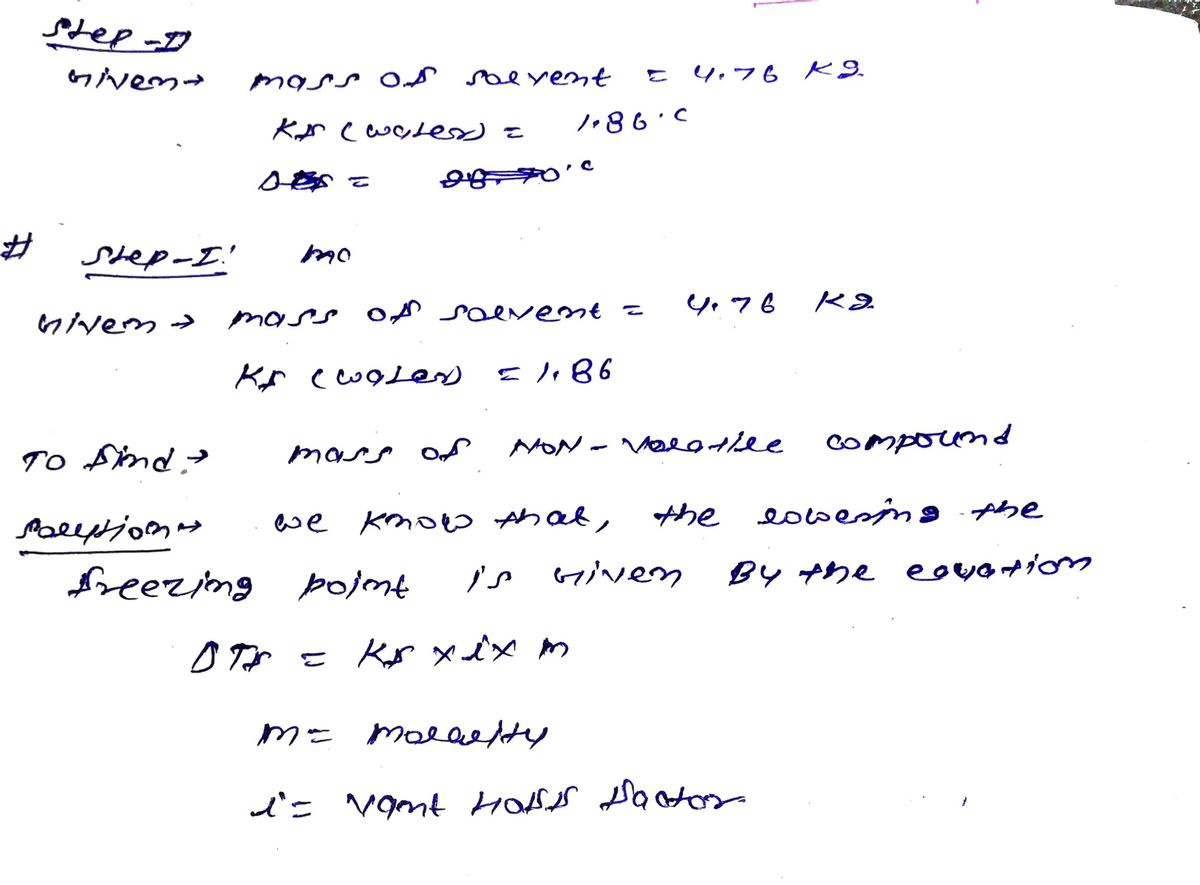 Step-I)
Given→ mass of solvent = 4.76 Kg.
Kf (water) = 1.86°C
Δ =
# Step-I! mo
Given → mass of solvent = 4.76 Kg
Kf (water) = 1.86
To find → mass of NON-volatile compound
Solution→ we know that, the lowering the
freezing point is Given By the equation
ΔTf = Kf × i × m
m = molality
i = vant Hoff factor